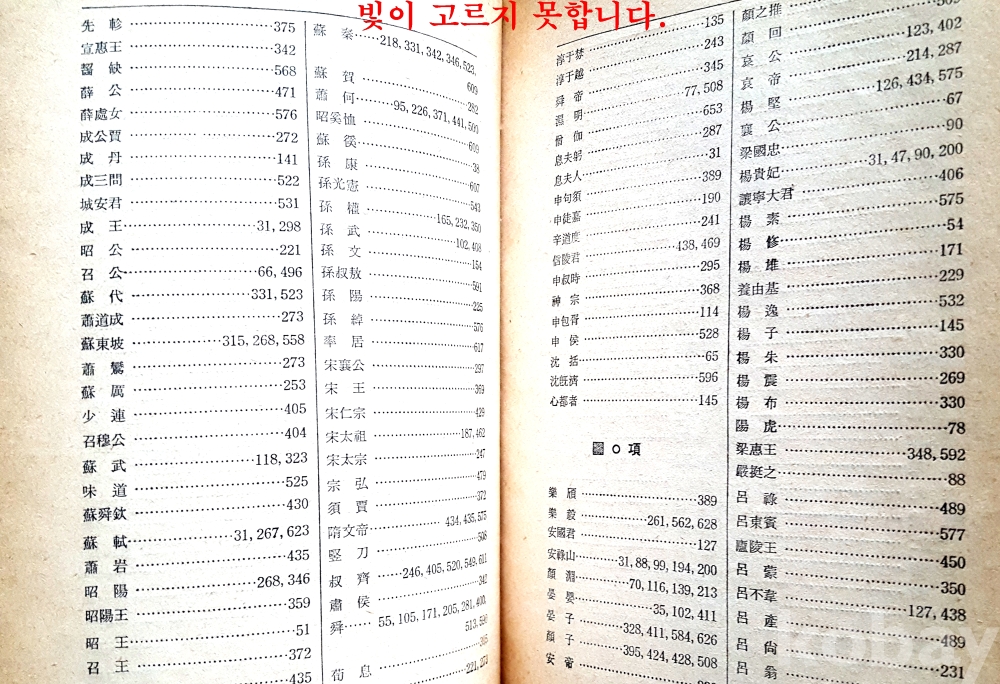 빛이 고르지 못합니다.
先軫 375
宣惠王 342
齧缺 568
薛公 471
薛處女 576
成公賈 272
成丹 141
成三問 522
城安君 531
成王 31,298
昭公 221
召公 66,496
蘇代 331,523
蕭道成 273
蘇東坡 315,268,558
蕭鸞 273
蘇厲 253
少連 405
召穆公 404
蘇武 118,323
味道 525
蘇舜欽 430
蘇軾 31,267,623
蕭岩 435
昭陽 268,346
昭陽王 359
昭王 51
召王 372
435
蘇秦 218,331,342,346,523,
609
蘇賀 282
蕭何 95,226,371,441,500
昭奚恤 609
蘇徯 38
孫康 607
孫光憲 543
孫權 165,232,350
孫武 102,408
孫文 154
孫叔敖 591
孫陽 225
孫綽 576
率居 617
宋襄公 297
宋王 369
宋仁宗 429
宋太祖 187,462
宋太宗 247
宗弘 479
須賈 372
隋文帝 434,435,575
竪刀 508
叔齊 246,405,520,549,611
肅侯 342
舜 55,105,171,205,281,400,
荀息 221,273
淳于棼 135
淳于越 243
舜帝 345
濕明 77,508
僧伽 653
息夫躬 287
息夫人 31
申句須 389
申徒嘉 190
辛道度 241
信陵君 438,469
申叔時 295
神宗 368
申包胥 114
申侯 528
沈括 65
沈旣濟 596
心都者 145
○項
樂頎 389
樂毅 261,562,628
安國君 127
安祿山 31,88,99,194,200
顏淵 70,116,139,213
晏嬰 35,102,411
晏子 328,411,584,626
顏子 395,424,428,508
安帝
顏之推
顏回 123,402
哀公 214,287
哀帝 126,434,575
楊堅 67
襄公 90
梁國忠 31,47,90,200
楊貴妃 406
讓寧大君 575
楊素 54
楊修 171
楊堆 229
養由基 532
楊逸 145
楊子 330
楊朱 269
楊震 330
楊布 78
陽虎 348,592
梁惠王 88
嚴挺之 489
呂祿 577
呂東賓 450
廬陵王 350
呂蒙 127,438
呂不韋 489
呂產 231
呂尙
呂翁